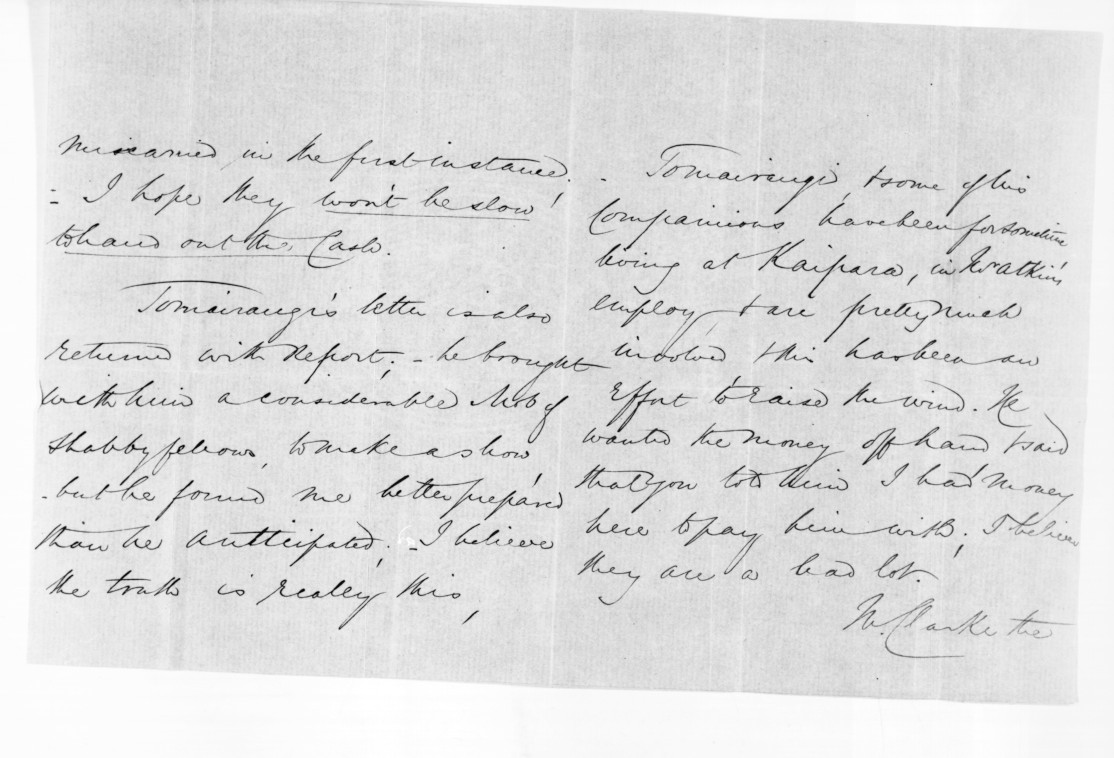 miscarried in the first instance.
- I hope they won't be slow
to hand out the Cash.
Tomairangi's letter is also
returned with Report; - he brought
with him a considerable Mob of
shabby fellows, to make a show,
- but he found me better prepared
than he anticipated. - I believe
the truth is really this,
- Tomairangi, & some of his
Companions have been for sometime
living at Kaipara, in Mr Atkin's
employ, & are pretty much
involved & this has been an
Effort to raise the wind. He
wanted the money off hand & said
that you told him I had money
here to pay him with; I believe
they are a bad lot.
Mr. Clarke the